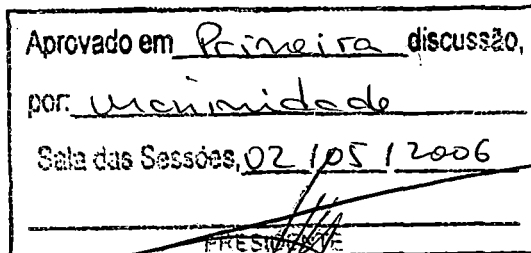 Aprovado em Primeira discussão,
por: unanimidade
Sala das Sessões, 02 / 05 / 2006
PRESIDENTE